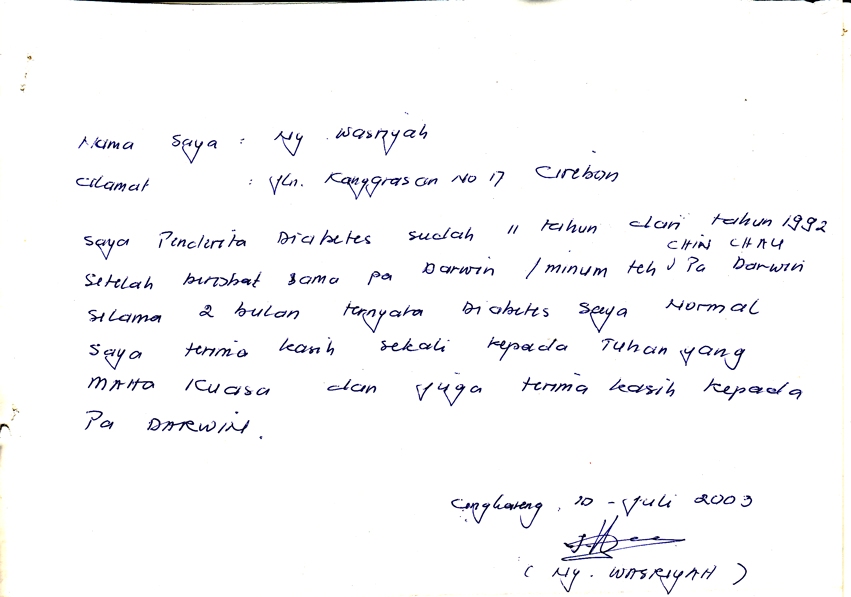 Nama saya : Ny Wasriyah
Alamat : Jln. Kanggrasan No 17 Cirebon
saya Penderita Diabetes sudah 11 tahun dari tahun 1992
CHIN CHAU
setelah berobat sama pa Darwin / minum teh Pa Darwin
selama 2 bulan ternyata Diabetes saya Normal
saya terima kasih sekali kepada Tuhan yang
MAHA Kuasa dan juga terima kasih kepada
Pa DARWIN.
Cengkareng, 10 - Juli 2003
( Ny. WASRIYAH )